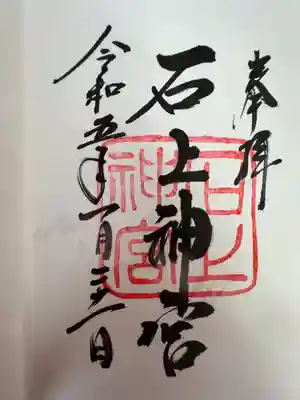 奉拝
石上神宮
石上
神宮
令和五年一月三十一日